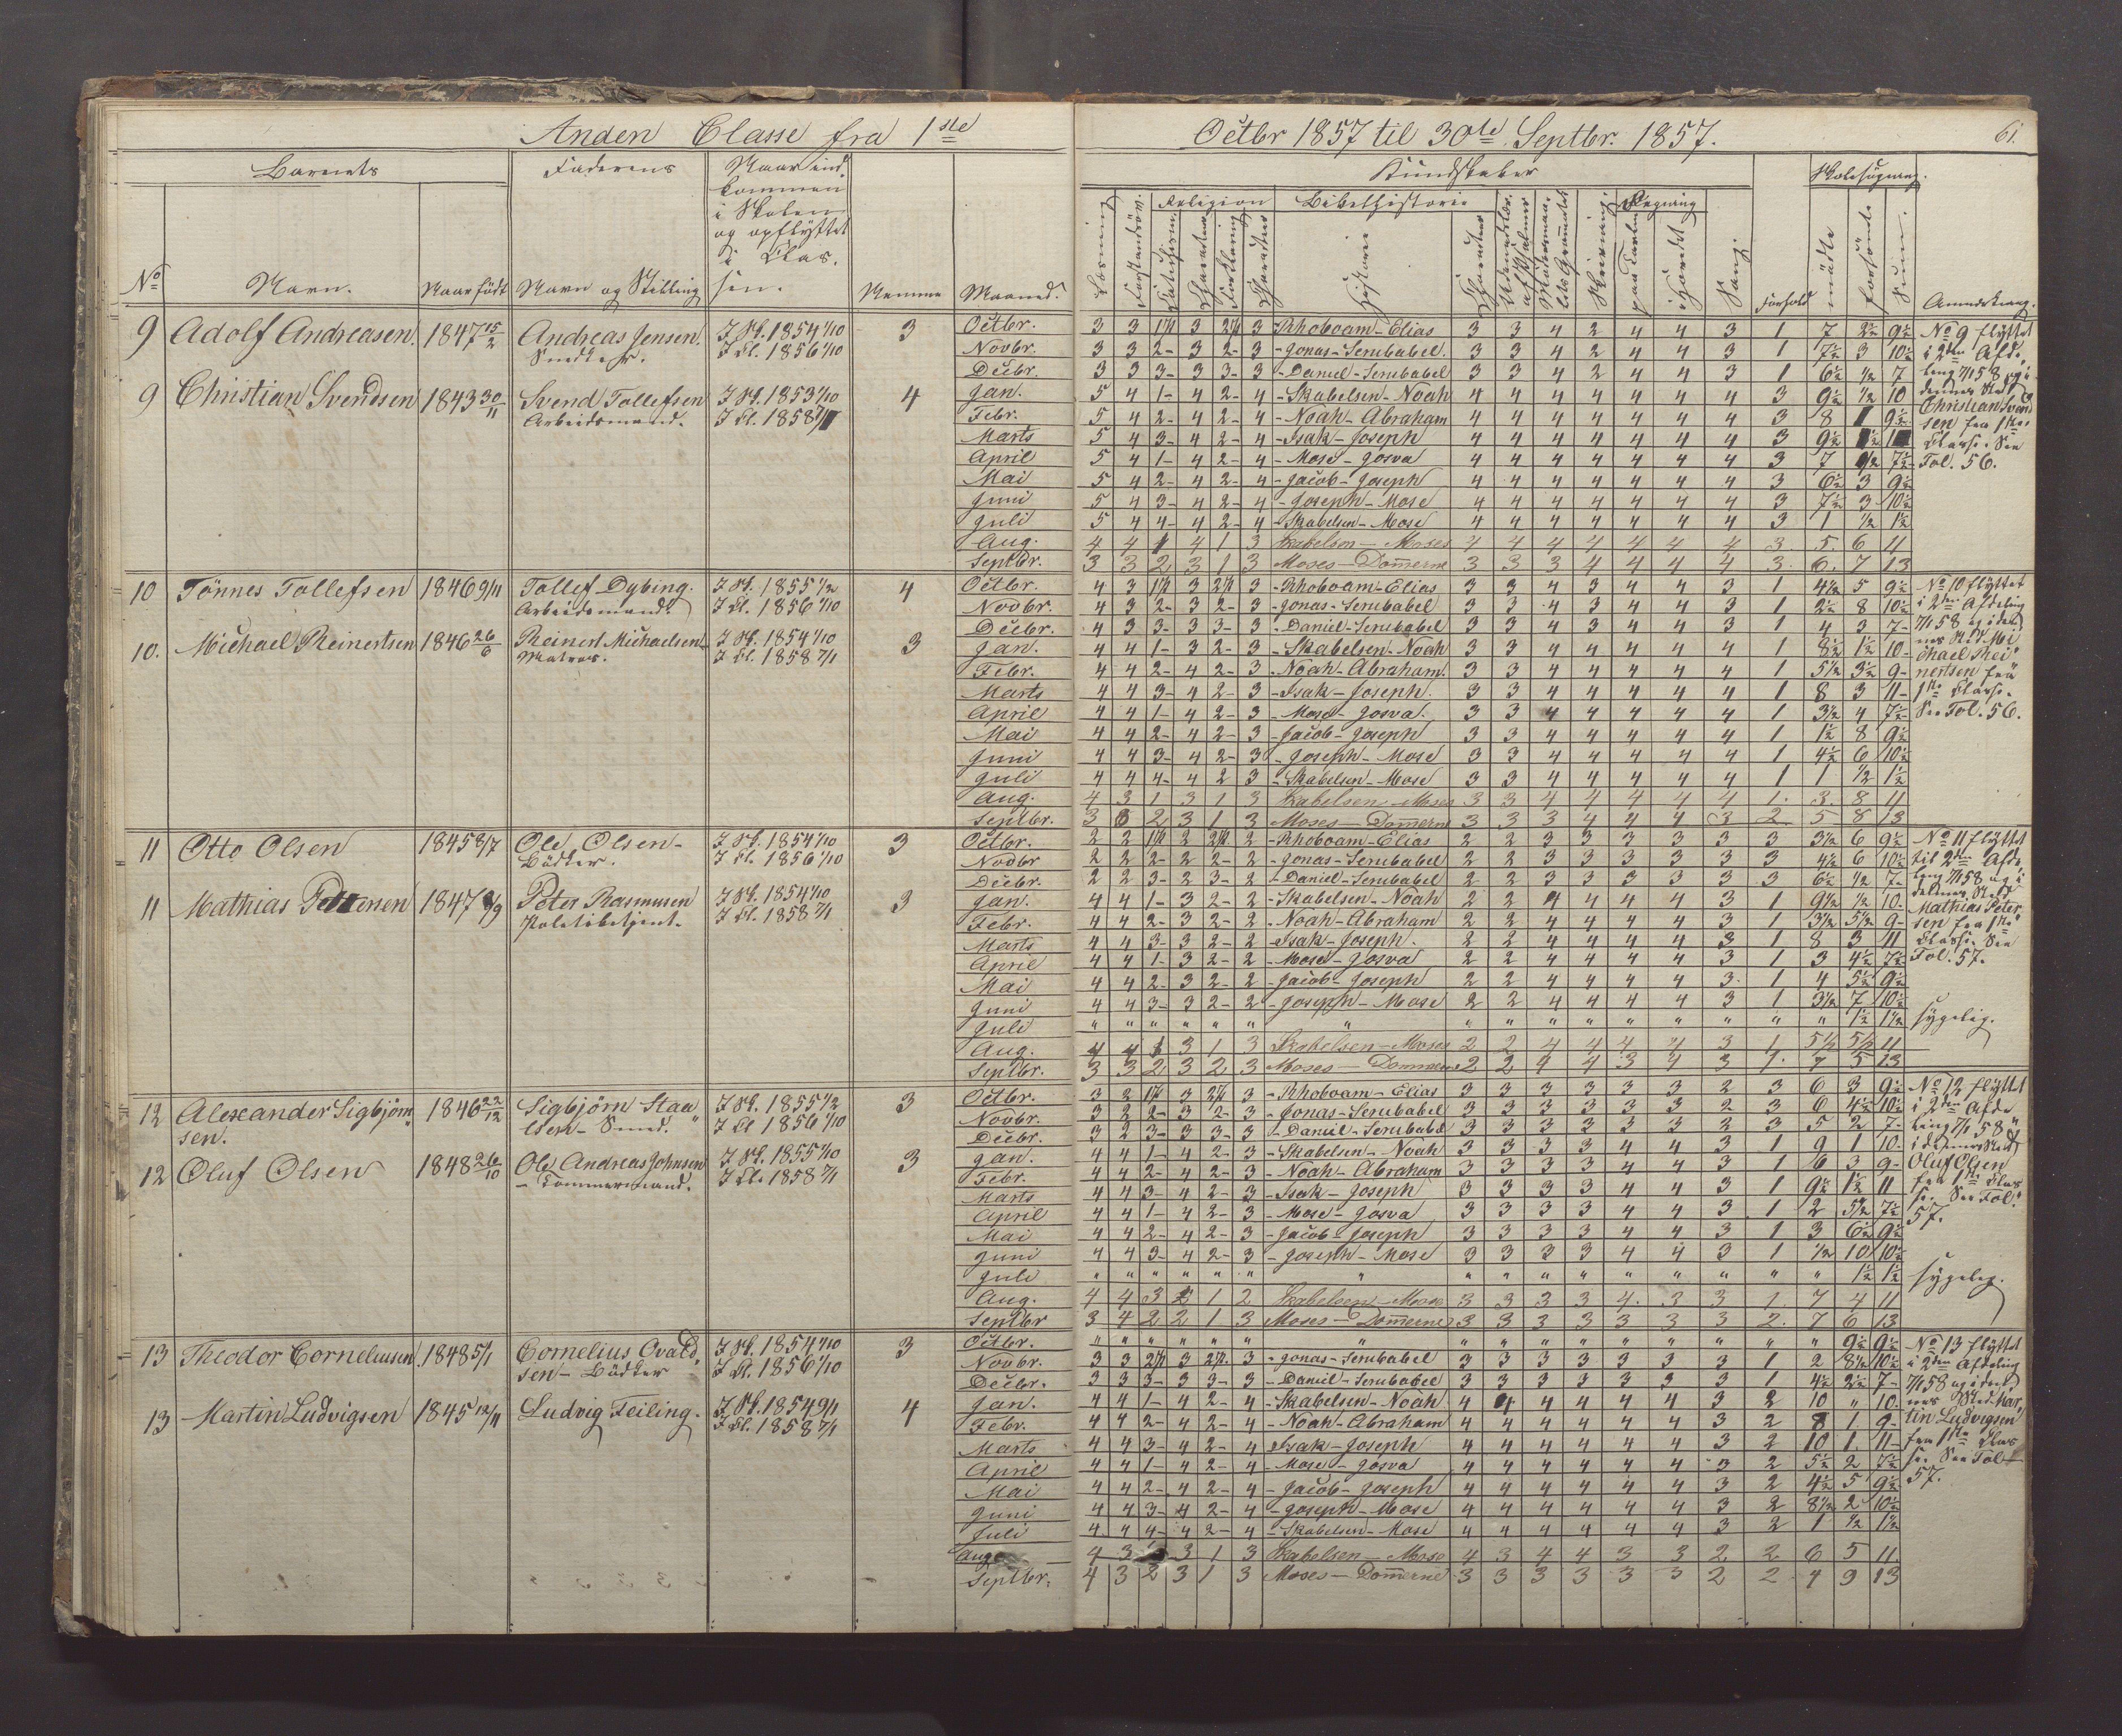 Anden Classe fra 1ste Octbr 1857 til 30te Septbr. 1857.
61.
Barnets Faderens Naar ind-
kommen
i Skolen
og opflyttet
i Clas-
sen.
Kundskaber Skolesøgning.
Religion Bibelhistorie Regning
No Navn. Naar født Navn og Stilling Nemme Maaned.
Læsning Historie Skrivning Sang. Forhold mødte forsømte Sum. Anmærkning.
9 Adolf Andreasen. 1847 15/2 Andreas Jensen. I Sk. 1854 1/10 3 Octbr. 3 3 1 1/2 3 2 1/2 3 - Rhoboam - Elias 3 3 4 2 4 4 3 1 7 2 1/2 9 1/2 No 9 flyttet
Snedker. I Cl. 1856 1/10 Novbr. 3 3 2 - 3 2 - 3 - Jonas - Serubabel. 3 3 4 2 4 4 3 1 7 1/2 3 10 1/2 i 2den Afde-
Decbr. 3 3 3 - 3 3 - 3 - Daniel - Serubabel 3 3 4 2 4 4 3 1 6 1/2 1/2 7 ling 7/1 58 og i
9 Christian Svendsen 1843 30/11 Svend Tollefsen I Sk. 1853 1/10 4 Jan. 5 4 1 - 4 2 - 4 - Skabelsen - Noah 4 4 4 4 4 4 4 3 9 1/2 1/2 10 dennes Sted
Arbeidsmand. I Cl. 1858 7/1 Febr. 5 4 2 - 4 2 - 4 - Noah - Abraham 4 4 4 4 4 4 4 3 8 1 9 1/2 Christian Svend
Marts 5 4 3 - 4 2 - 4 - Isak - Joseph 4 4 4 4 4 4 4 3 9 1/2 1 1/2 sen fra 1ste
April 5 4 1 - 4 2 - 4 - Mose - Josva 4 4 4 4 4 4 4 3 7 1/2 7 1/2 Classe. See
Mai 5 4 2 - 4 2 - 4 - Jacob - Joseph 4 4 4 4 4 4 4 3 6 1/2 3 9 1/2 Fol. 56.
Juni 5 4 3 - 4 2 - 4 - Joseph - Mose 4 4 4 4 4 4 4 3 7 1/2 3 10 1/2
Juli 5 4 4 - 4 2 - 4 - Skabelsen - Mose 4 4 4 4 4 4 4 3 1 1/2 1 1/2
Aug. 4 4 1 4 1 3 Skabelsen - Moses 4 4 4 4 4 4 4 3. 5. 6 11
Septbr. 3 3 2 3 1 3 Moses - Dom̄erne 3 3 3 4 4 4 4 3. 6. 7 13
10 Tönnes Tollefsen 1846 9/11 Tollef Dybing. I Sk. 1855 1/2 4 Octbr. 4 3 1 1/2 3 2 1/2 3 - Rhoboam - Elias 3 3 4 3 4 4 3 1 4 1/2 5 9 1/2 No 10 flyttet
Arbeidsmand. I Cl. 1856 1/10 Novbr. 4 3 2 - 3 2 - 3 - Jonas - Serubabel 3 3 4 3 4 4 3 1 2 1/2 8 10 1/2 i 2den Afdeling
Decbr. 4 3 3 - 3 3 - 3 - Daniel - Serubabel 3 3 4 3 4 4 3 1 4 3 7 - 7/1 58 og i den
10. Michael Reinertsen 1846 26/6 Reinert Michaelsen I Sk. 1854 1/10 3 Jan. 4 4 1 - 3 2 - 3 - Skabelsen - Noah 3 3 4 4 4 4 4 1 8 1/2 1 1/2 10 - nes Sted Mi
Matros. I Cl. 1858 7/1 Febr. 4 4 2 - 4 2 - 3 - Noah - Abraham. 3 3 4 4 4 4 4 1 5 1/2 3 1/2 9 - chael Rei
Marts 4 4 3 - 4 2 - 3 - Isak - Joseph. 3 3 4 4 4 4 4 1 8 3 11 - nertsen fra
April 4 4 1 - 4 2 - 3 - Mose - Josva. 3 3 4 4 4 4 4 1 3 1/2 4 7 1/2 1ste Classe.
Mai 4 4 2 - 4 2 - 3 - Jacob - Joseph 3 3 4 4 4 4 4 1 1 1/2 8 9 1/2 See Fol. 56.
Juni 4 4 3 - 4 2 - 3 - Joseph - Mose 3 3 4 4 4 4 4 1 4 1/2 6 10 1/2
Juli 4 4 4 - 4 2 3 - Skabelsen - Mose 3 3 4 4 4 4 4 1 1 1/2 1 1/2
Aug. 4 3 1 3 1 3 Skabelsen - Moses 3 3 4 4 4 4 4 1. 3. 8 11
Septbr. 3 3 2 3 1 3 Moses - Dom̄erne 3 3 3 4 4 4 3 2 5 8 13
11 Otto Olsen 1845 8/7 Ole Olsen - I Sk. 1854 1/10 3 Octbr. 2 2 1 1/2 2 2 1/2 2 - Rhoboam - Elias 2 2 3 3 3 3 3 3 3 1/2 6 9 1/2 No 11 flyttet
Bödker. I Cl. 1856 1/10 Novbr 2 2 2 - 2 2 - 2 - Jonas - Serubabel 2 2 3 3 3 3 3 3 4 1/2 6 10 1/2 til 2den Afde
Decbr. 2 2 3 - 2 3 - 2 - Daniel - Serubabel 2 2 3 3 3 3 3 3 6 1/2 1/2 7 - ling 7/1 58 og i
11 Mathias Petersen 1847 9/9 Peter Rasmusen I Sk. 1854 1/10 3 Jan. 4 4 1 - 3 2 - 2 - Skabelsen - Noah 2 2 4 4 4 4 3 1 9 1/2 1/2 10 - dennes Sted
Politibetjent. I Cl. 1858 7/1 Febr. 4 4 2 - 3 2 - 2 - Noah - Abraham 2 2 4 4 4 4 3 1 3 1/2 5 1/2 9 - Mathias Peter
Marts 4 4 3 - 3 2 - 2 - Isak - Joseph. 2 2 4 4 4 4 3 1 8 3 11 sen fra 1ste
April 4 4 1 - 3 2 - 2 - Mose - Josva 2 2 4 4 4 4 3 1 3 4 1/2 7 1/2 Classe. See
Mai 4 4 2 - 3 2 - 2 - Jacob - Joseph 2 2 4 4 4 4 3. 1 4 5 1/2 9 1/2 Fol. 57.
Juni 4 4 3 - 3 2 - 2 - Joseph - Mose 2 2 4 4 4 4 3 1 3 1/2 7 10 1/2
Juli " " " " " " " " " " " " " " " " 1 1/2 1 1/2 sygelig.
Aug. 4 4 1 3 1 3 Skabelsen - Moses 2 2 4 4 4 4 3 1 5 1/2 5 1/2 11
Septbr. 3 3 2 3 2 3 Moses - Dommerne 2 2 4 4 3 4 3 1. 7 5 13
12 Alexander Sigbjörn 1846 22/12 Sigbjörn Staa I Sk. 1855 1/2 3 Octbr. 3 2 1 1/2 3 2 1/2 3 - Rhoboam - Elias 3 3 3 3 3 3 2 3 6 3 9 1/2 No 12 flyttet
sen. lsen - Smed. I Cl 1856 1/10 Novbr. 3 2 2 - 3 2 - 3 - Jonas - Serubabel 3 3 3 3 3 3 2 3 6 4 1/2 10 1/2 i 2den Afde
Decbr. 3 2 3 - 3 3 - 3 - Daniel - Serubabel 3 3 3 3 3 3 2 3 5 2 7 - ling 7/1 58
12 Oluf Olsen 1848 26/10 Ole Andreas Johnsen I Sk. 1855 1/10 3 Jan. 4 4 1 - 4 2 - 3 - Skabelsen - Noah 3 3 3 3 4 4 3 1 9 1 10. i dennes Sted
- Tømmermand. I Cl. 1858 7/1 Febr. 4 4 2 - 4 2 - 3 - Noah - Abraham 3 3 3 3 4 4 3 1 6 3 9 - Oluf Olsen
Marts 4 4 3 - 4 2 - 3 - Isak - Joseph 3 3 3 3 4 4 3 1 9 1/2 1 1/2 11 fra 1ste Clas
April 4 4 1 - 4 2 - 3 - Mose - Josva 3 3 3 3 4 4 3 1 2 5 1/2 7 1/2 se. See Fol.
Mai 4 4 2 - 4 2 - 3 - Jacob - Joseph 3 3 3 3 4 4 3 1 3 6 1/2 9 1/2 57.
Juni 4 4 3 - 4 2 - 3 - Joseph - Mose 3 3 3 3 4 4 3 1 1/2 10 10 1/2
Juli " " " " " " " " " " " " " " " " 1 1/2 1 1/2 sygelig.
Aug. 4 4 3 2 1 2 Skabelsen - Mose 3 3 3 3 4. 3 3 1 7 4 11
Septbr 3 4 2 2 1 3 Moses - Dom̄erne 3 3 3 3 3 3 3 2. 7 6 13
13 Theodor Corneliusen 1848 5/1 Cornelius Ovald I Sk. 1854 1/10 3 Octbr. " " " " " " " " " " " " " " " " 9 1/2 9 1/2 No 13 flyttet
sen - Bödker I Cl. 1856 1/10 Novbr. 3 3 2 1/2 3 2 1/2 3 - Jonas - Serubabel 3 3 3 3 3 3 3 1 2 8 1/2 10 1/2 i 2den Afdeling
Decbr. 3 3 3 - 3 3 - 3 - Daniel - Serubabel 3 3 3 3 3 3 3 1 4 1/2 2 1/2 7 - 7/1 58 og i den
13 Martin Ludvigsen 1845 12/11 Ludvig Feiling. I Sk. 1854 9/11 4 Jan. 4 4 1 - 4 2 - 4 - Skabelsen - Noah 4 4 4 4 4 4 3 2 10 " 10. nes Sted Mar
I Cl. 1858 7/1 Febr. 4 4 2 - 4 2 - 4 - Noah - Abraham 4 4 4 4 4 4 3 2 8 1. 9 - tin Ludvigsen
Marts 4 4 3 - 4 2 - 4 Isak - Joseph 4 4 4 4 4 4 3 2 10 1. 11 - fra 1ste Clas
April 4 4 1 - 4 2 - 4 - Mose - Josva 4 4 4 4 4 4 3 2 5 1/2 2 7 1/2 se. See Fol
Mai 4 4 2 - 4 2 - 4 - Jacob - Joseph 4 4 4 4 4 4 3 2 4 1/2 5 9 1/2 57.
Juni 4 4 3 - 4 2 - 4 - Joseph - Mose 4 4 4 4 4 4 3 2 8 1/2 2 10 1/2
Juli 4 4 4 - 4 2 - 4 - Skabelsen - Mose 4 4 4 4 4 4 3 2 1 1/2 1 1/2
Aug 4 3 3 1 3 Skabelsen - Mose 4 3 4 4 3 3 2 2 6 5 11
Septbr. 4 3 2 3 1 3 Moses - Dom̄erne 3 3 3 3 3 3 2 2. 4 9 13